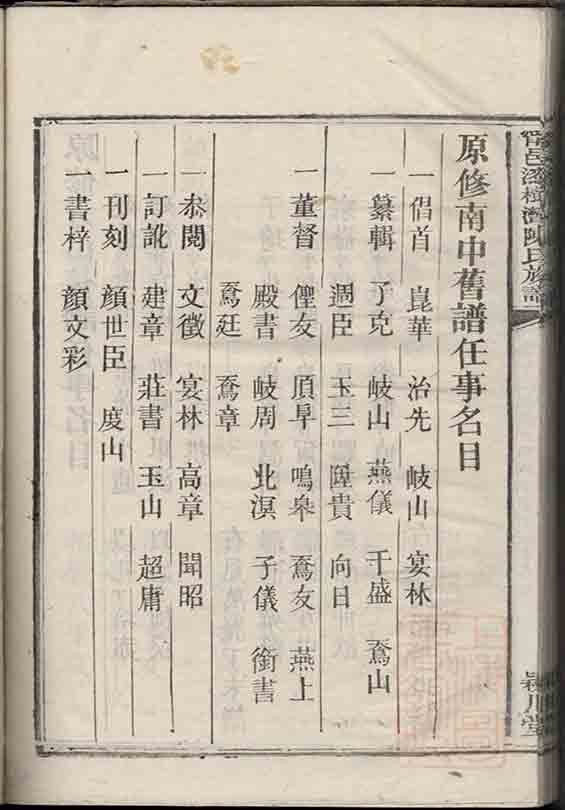 原修南中舊譜任事名目
一倡首 崑華 治先 岐山 宴林
一纂輯 了克 岐山 燕儀 千盛 鴌山
週臣 玉三 陞貴 向日
一董督 俚友 頂早 鳴皋 鴌友 燕上
殿書 岐周 北溟 子儀 銜書
鴌廷 鴌章
一叅閱 文徵 宴林 高章 聞昭
一訂訛 建章 莊書 玉山 超庸
一刊刻 顔世臣 度山
一書梓 顔文彩
陳氏族譜
潁川堂